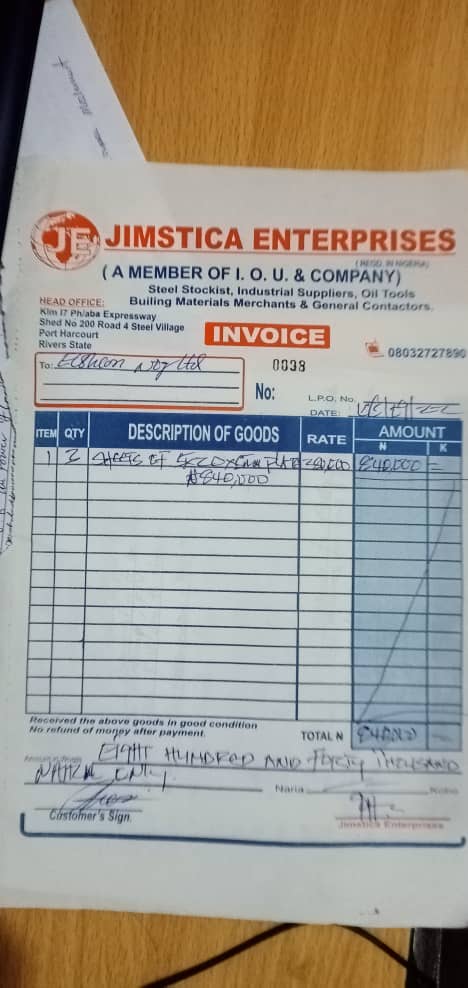 JE
JIMSTICA ENTERPRISES
(REGD. IN NIGERIA)
(A MEMBER OF I. O. U. & COMPANY)
Steel Stockist, Industrial Suppliers, Oil Tools
Builing Materials Merchants & General Contactors.
HEAD OFFICE:
Klm 17 Ph/aba Expressway
Shed No 200 Road 4 Steel Village
Port Harcourt
Rivers State
INVOICE
08032727890
To: Ltd
0038
No:
L.P.O. No.
DATE:
ITEM QTY DESCRIPTION OF GOODS RATE AMOUNT
N K
1 3 SHEETS OF 280,000 840,000 =
₦840,000
Received the above goods in good condition
No refund of money after payment.
TOTAL N 840,000
EIGHT HUNDRED AND FORTY THOUSAND
NAIRA ONLY
Naria Kobo
Customer's Sign.
Jimstica Enterprises